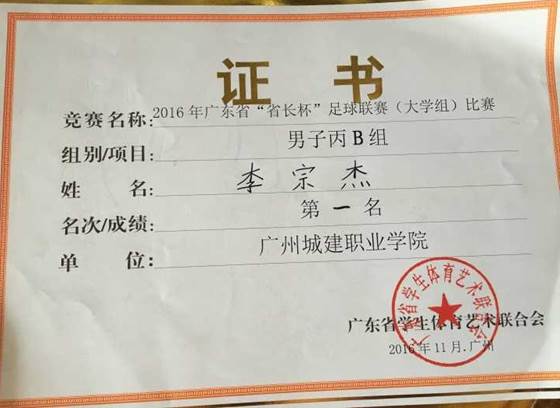 证书
竞赛名称：2016年广东省“省长杯”足球联赛（大学组）比赛
组别/项目：男子丙B组
姓名：李宗杰
名次/成绩：第一名
单位：广州城建职业学院
广东省学生体育艺术联合会
2016年11月.广州
广东省学生体育艺术联合会